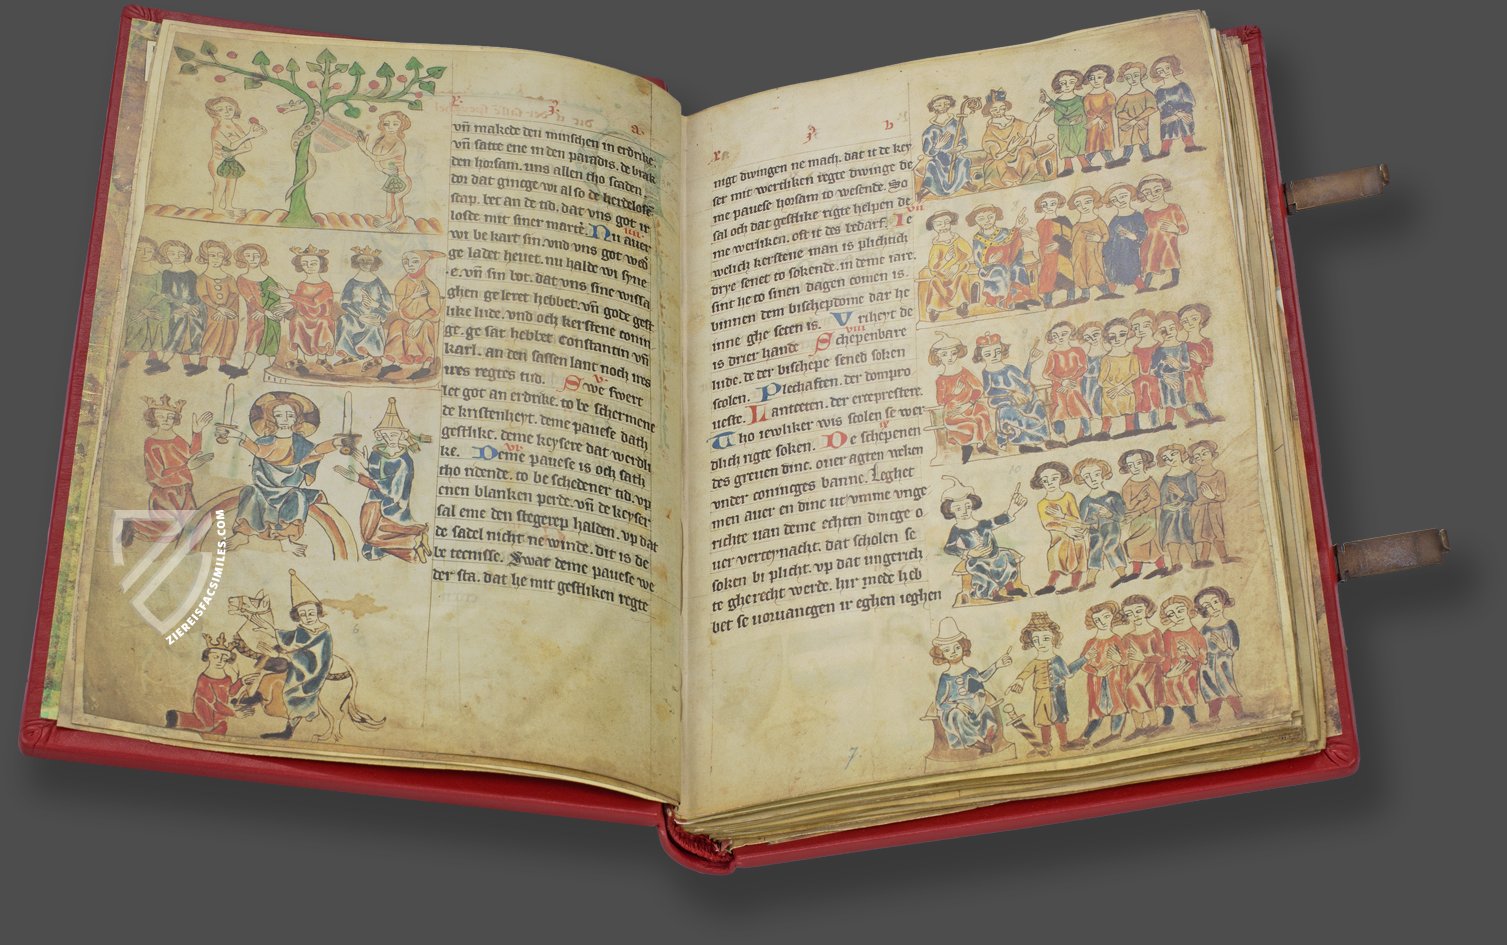 vn̄ makede den minschen in erdrike.
vn̄ satte ene in den paradis. de brak
den horsam. uns allen tho scaden
dor dat ginge wi also de herdelose
scap. bet an de tid. dat vns got ir
loste mit siner marter. Nu auer
wi be kart sin. vnd vns got wed
ge ladet heuet. nu halde wi syne
e. vn̄ sin bot. dat vns sine wissa
ghen geleret hebbet. vn̄ gode gest
like lude. vnd och kerstene conin
ge. ge sat hebbet constantin vn̄
karl. an den sassen lant noch ires
ires regtes tid. Swe swert
let got an erdrike. to be schermene
de kristenheyt. deme pauese dath
gestlike. deme keysere dat werdli
ke. Deme pauese is och sath
tho ridende. to be schedener tid. vp
enen blanken perde. vn̄ de keyser
sal eme den stegerep halden. vp dat
de sadel nicht ne winde. dit is de
be tecnisse. Swat deme pauese we
der sta. dat he mit gestliken regte
b
nigt dwingen ne mach. dat it de key
ser mit wertliken regte dwinge de
me pauese horsam to wesende. So
sal och dat gestlike rigte helpen de
me werliken. oft it des bedarf. Ie
welich kerstene man is plichtich
drye senet to sokende. in deme iare.
sint he to sinen dagen comen is.
binnen dem bischepdome dar he
inne ghe seten is. Vriheyt de
is drier hande Schepenbare
lude. de der bischepe sened soken
scolen. Plechaften. der dompro
ueste. Lantseten. der erceprestere.
Tho iewliker wis scolen se wer
dlich rigte soken. De schepenen
des greuen dinc. ouer agten weken
vnder coninges banne. Leghet
men auer en dinc ut vmme vnge
richte uan deme echten dincge o
uer verteynacht. dat scholen se
soken bi plicht. vp dat ungerich
te gherecht werde. hir mede heb
bet se uoruangen ir eghen ieghen
7.
ZIEREISFACSIMILES.COM